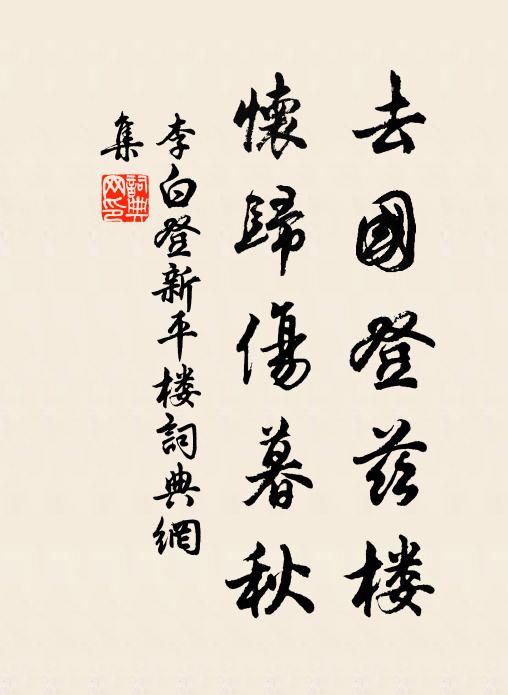 去國登茲楼
懷歸傷暮秋
李白登新平楼詞典網
集
詞典
网印